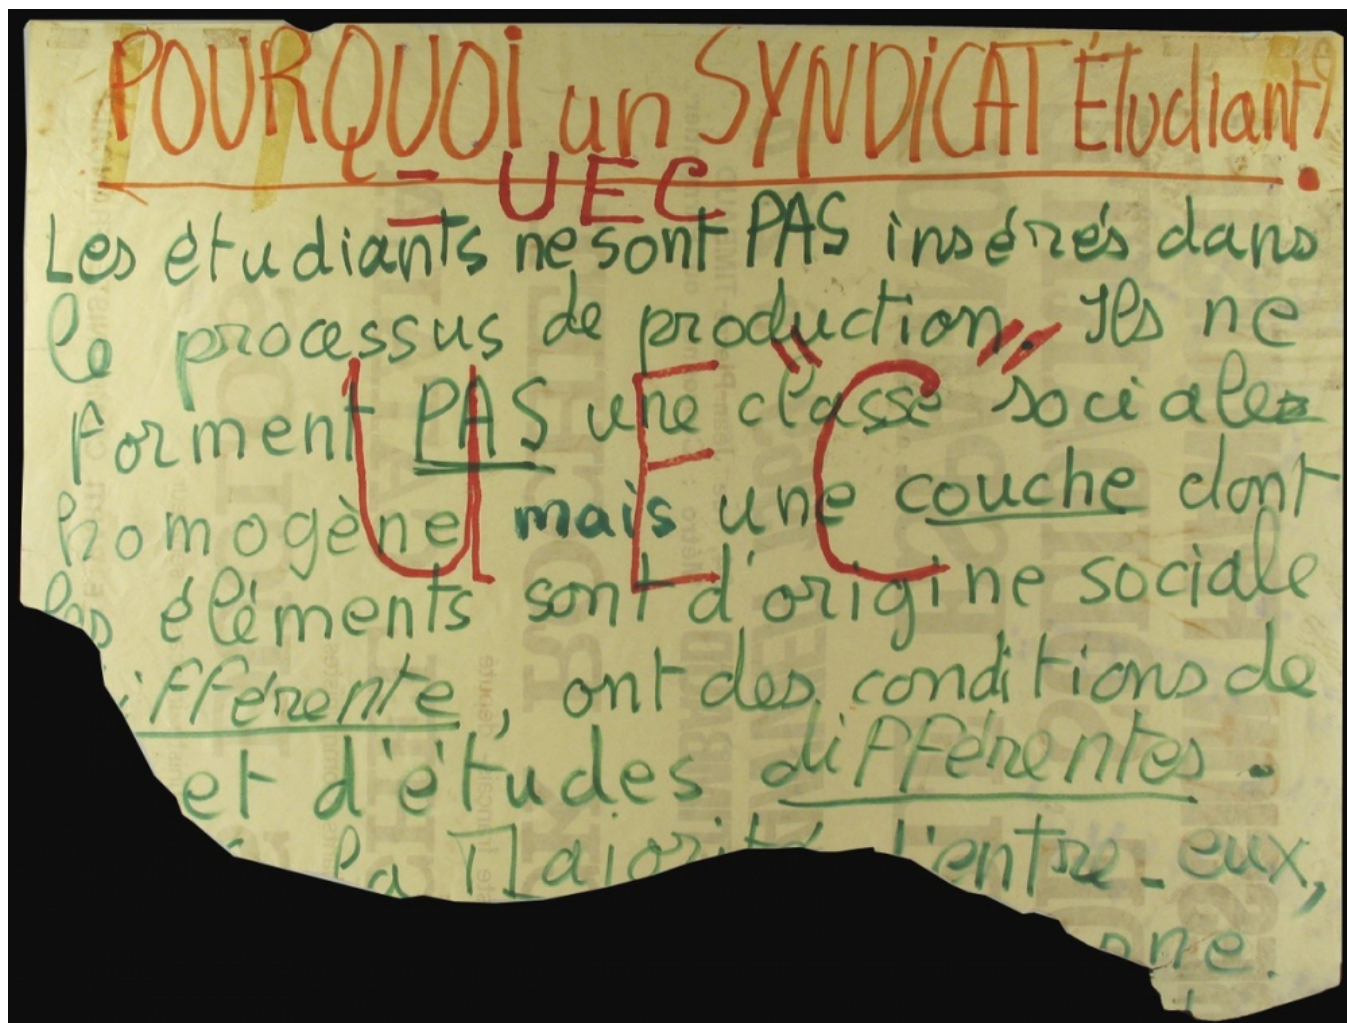 POURQUOi un SYNDiCAT Étudiant?
= UEC
Les étudiants ne sont PAS insérés dans
le processus de production. Ils ne
forment PAS une classe sociale
homogène mais une couche dont
les éléments sont d'origine sociale
ifférente, ont des conditions de
et d'études différentes.
la Majorité d'entre-eux,
nne.
"UEC"